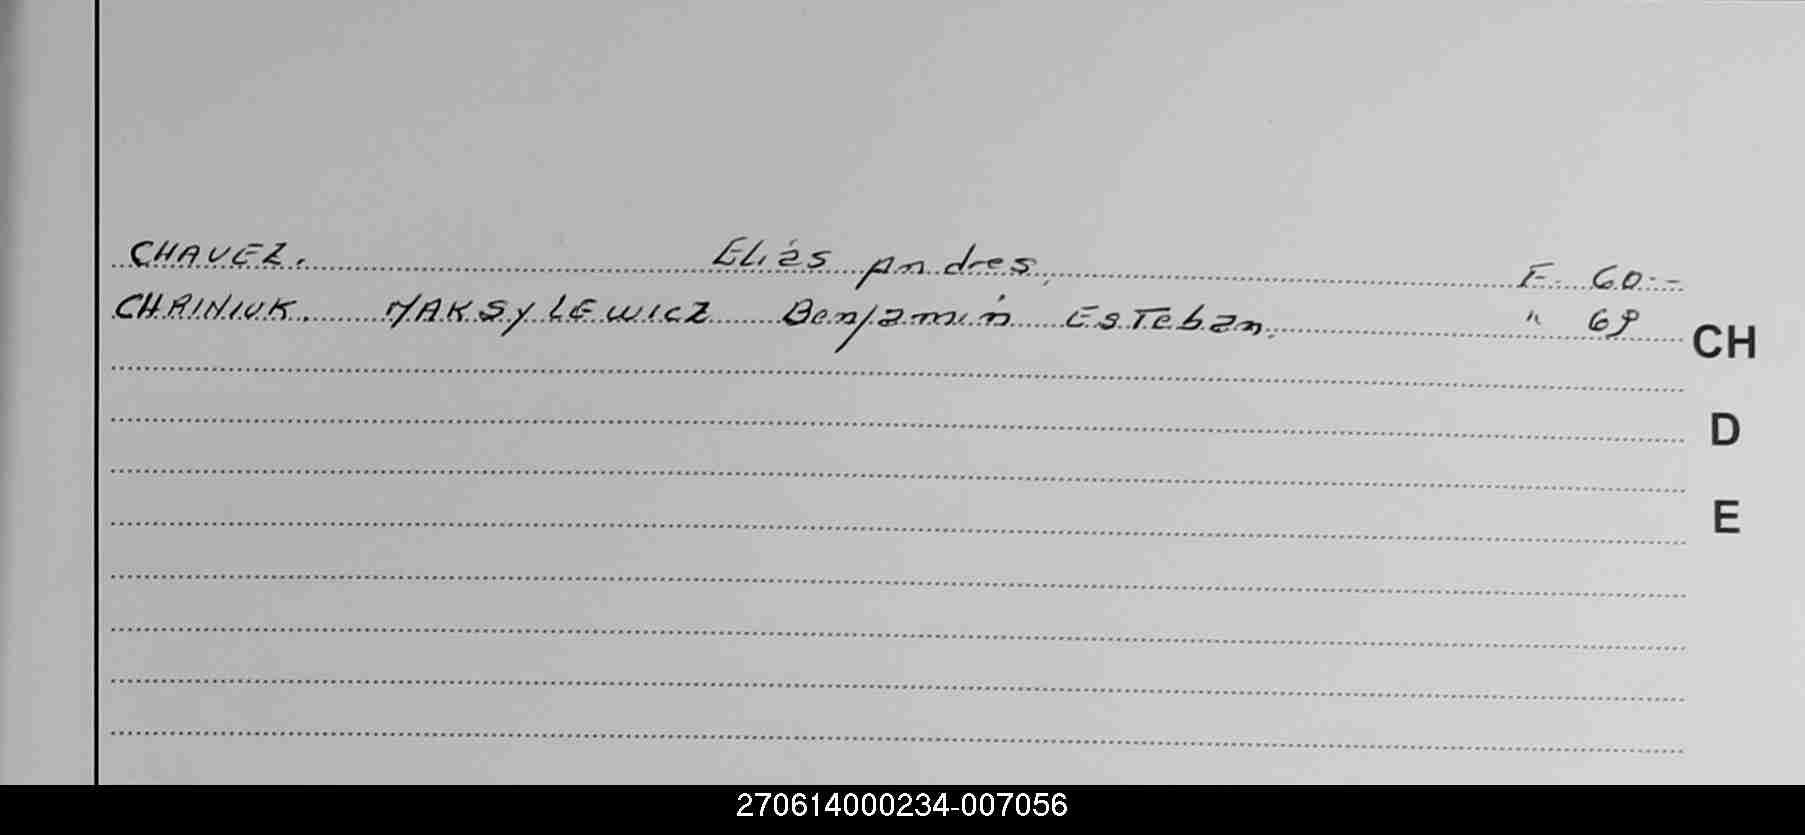 CHAVEZ. Elías Andres, F. 60.-
CHRINIUK. MAKSYLEWICZ Benjamín Esteban. " 69
CH
D
E
270614000234-007056